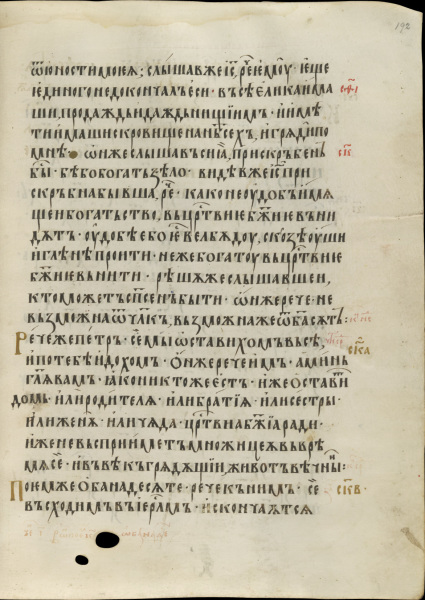 192
ѿюности моея ; слышавже і҃с, рече емоу · їеще
їединого недоконьчалъ еси · въсѣ елика има
ши, продаждь и даждь нищїимъ · и имѣ
ти имаши скровище на нб҃сехъ, и гряди по
мнѣ · ѡнже слышавъ сиа, прискръбень
бы · бѣ бо богатъ ѕѣло · видѣвже і҃с при
скръбна бывша, рече · како неоудобь имѫ
щеи богатьство, въ цр҃твие бж҃ие въни
дѫтъ · оудобѣе бо їе вельбѫдоу, скоѕѣ оуши
иглѣнѣ проити · неже богатоу въ цр҃твие
бж҃ие вьнити · рѣшѫже слышавшеи,
кто можетъ сп҃сенъ быти · ѡнже рече · не
възможна ѿ чл҃къ, възможна же ѿ б҃а сѫтъ :
Рече же петръ · се мы ѡставихомъ въсѣ,
и по тебѣ идохомъ · ѡнже рече имъ · аминь
гл҃ѧ вамъ · ꙗко никтоже естъ · иже ѡставитъ
домь · или родителѧ · или братїѧ · или сестры ·
или женѫ · или чѧда · цр҃твиа бж҃їа ради ·
иже не въсприиметъ множицеѫ въ врѣ
мѧ се · и въ вѣкъ грѧдѫщїи, животъ вѣчныи :
Поемже обанадесѧте · рече къ нимъ · се
въсходимъ въ іер҃лмъ · и скончаѫтсѧ